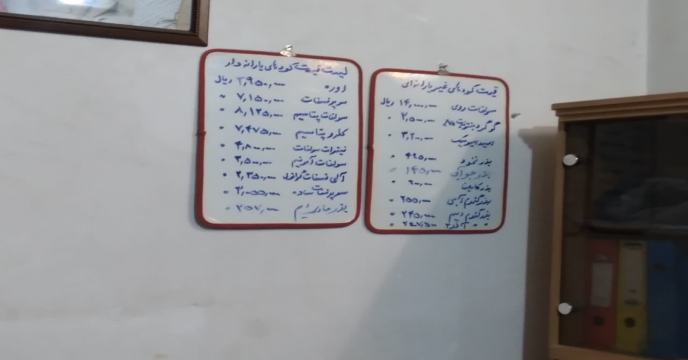 لیست قیمت کودهای یارانه دار
اوره ۲,۹۵۰,۰۰۰ ریال
سوپرفسفات ۷,۱۵۰,۰۰۰ "
سولفات پتاسیم ۸,۱۲۵,۰۰۰ "
کلرو پتاسیم ۷,۴۷۵,۰۰۰ "
نیترات سولفات ۴,۸۰۰,۰۰۰ "
سولفات آمونیم ۳,۵۰۰,۰۰۰ "
آلی فسفات گرانوله ۲,۳۵۰,۰۰۰ "
سوپرفسفات ساده ۲,۰۵۵,۰۰۰ "
بذر
قیمت کودهای غیر یارانه ای
سولفات روی ۱۴,۰۰۰,۰۰۰ ریال
گوگرد بنتونیت ۲,۵۰۰,۰۰۰ "
اسید هیومیک ۳,۲۰۰,۰۰۰
بذر نخود ۴۹۵,۰۰۰ "
بذر ۱۴۵,۰۰۰ "
بذر ۹۰,۰۰۰ "
بذر گندم آبی ۲۵۵,۰۰۰ "
بذر گندم دیم ۲۴۵,۰۰۰ "